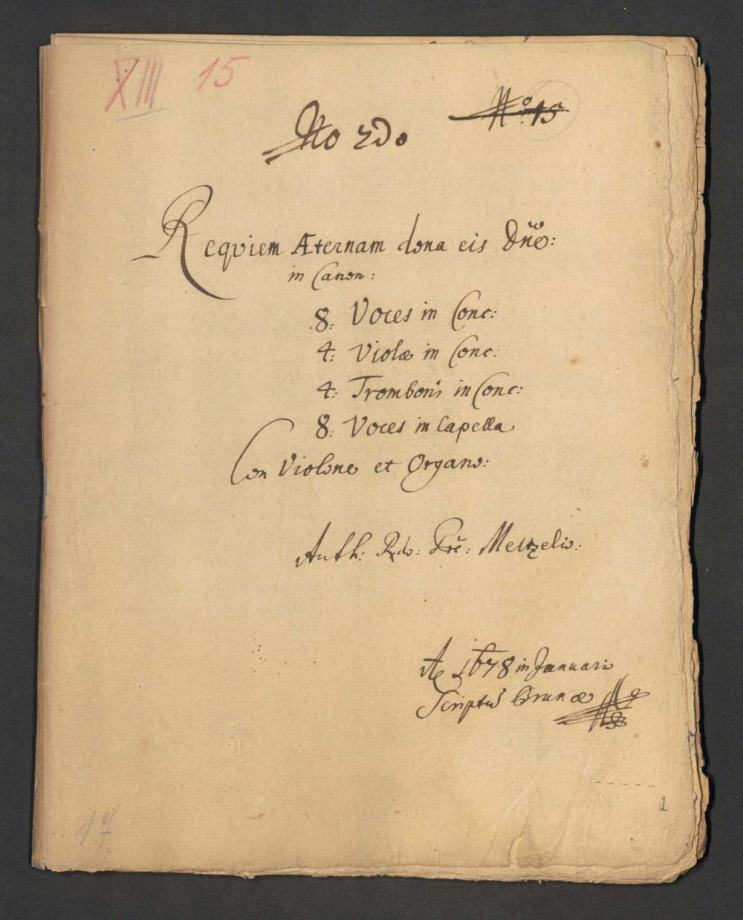 XIII 15
No 2do
No: 15
Requiem Æternam dona eis Dñe:
in Canon:
8: Voces in Conc:
4: Violæ in Conc:
4: Tromboni in Conc:
8: Voces in Capella
Con Violone et Organo:
Auth: Rdo: Pre: Meltzelio:
A 1678 in Januario
Scriptus Brunæ
17
1